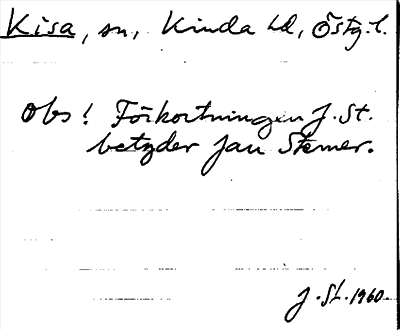 Kisa, sn, Kinda hd, Östg. l.
Obs! Förkortningen J. St.
betyder Jan Stemer.
J. St. 1960